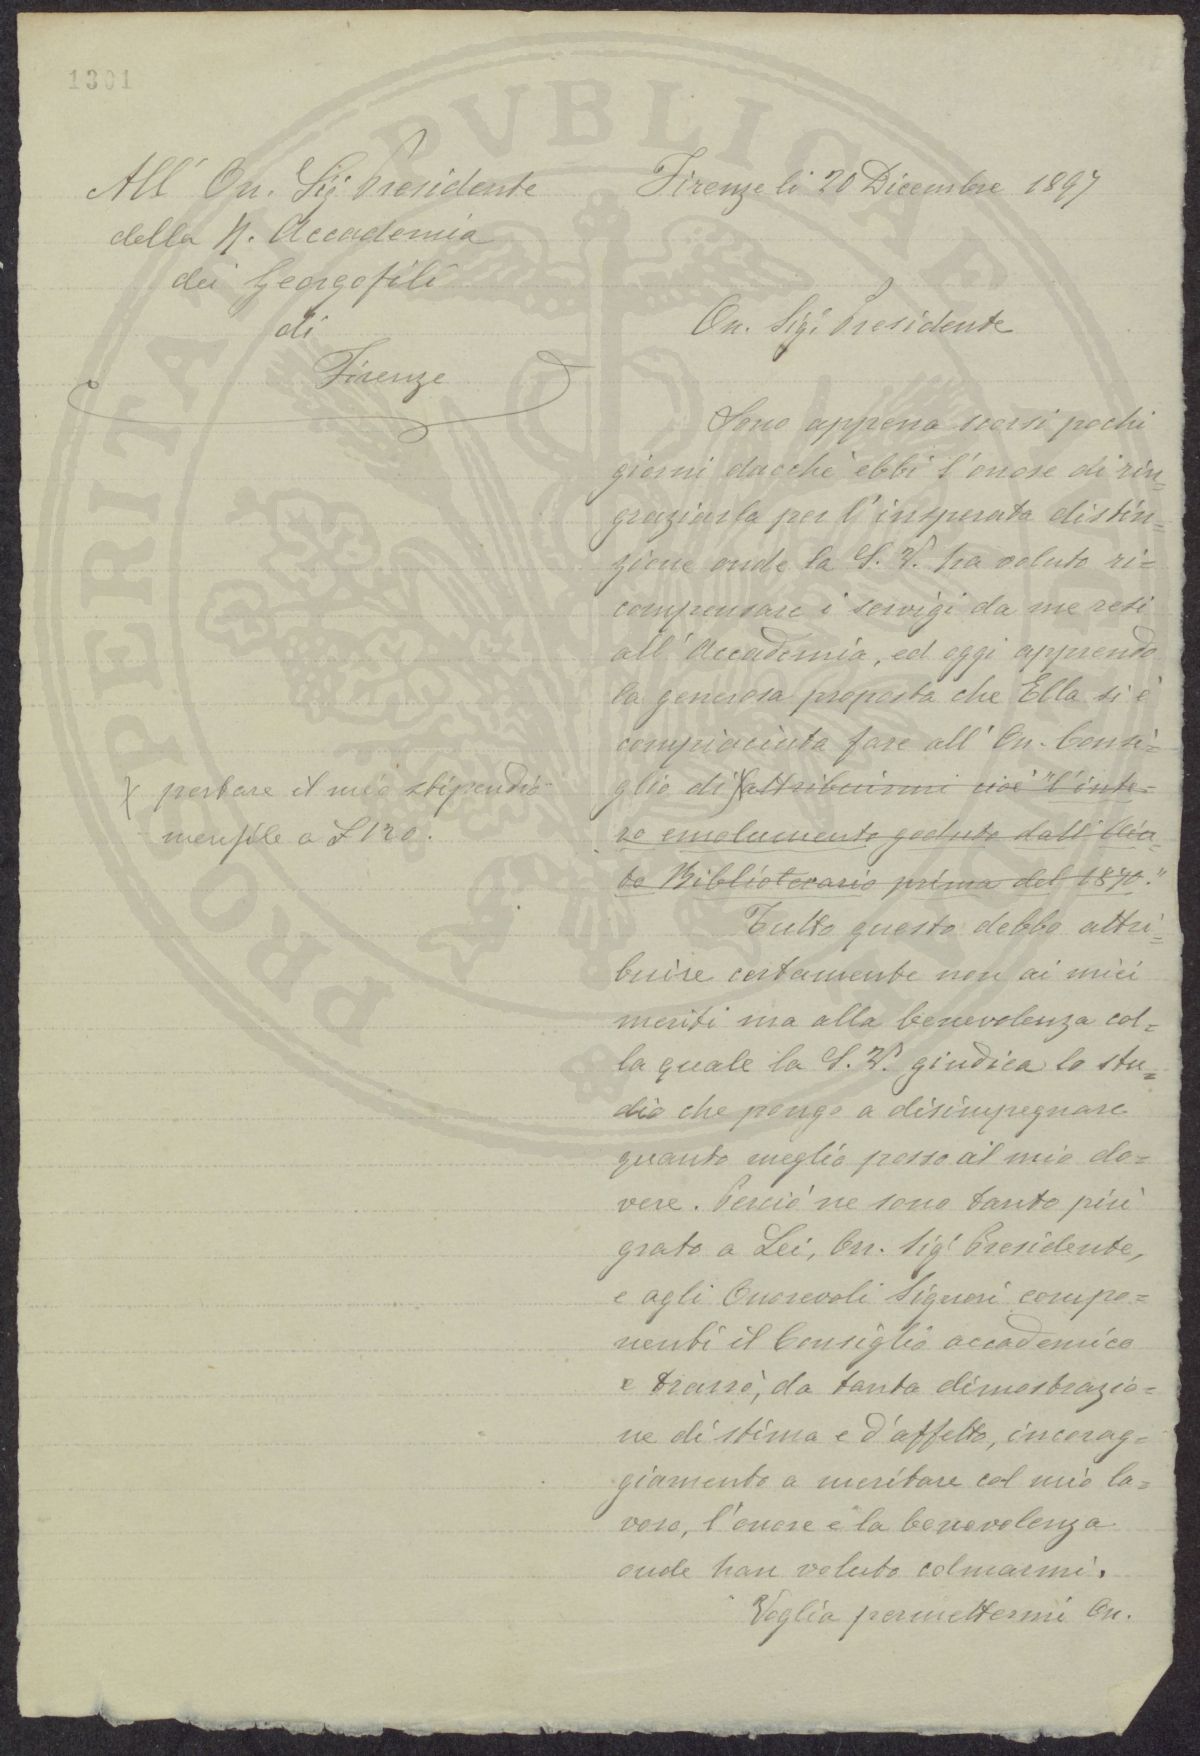 1301
All' On. Sig. Presidente
della R. Accademia
dei Georgofili
di
Firenze
Firenze li 20 Dicembre 1897
On. Sig. Presidente
Sono appena scorsi pochi
giorni dacchè ebbi l'onore di rin=
graziarla per l'insperata distin=
zione onde la S. V. ha voluto ri=
compensare i servigi da me resi
all'Accademia, ed oggi apprendo
la generosa proposta che Ella si è
compiaciuta fare all'On. Consi=
glio di attribuirmi cioè "l'inte=
ro emolumento goduto dall'Aiu=
to Bibliotecario prima del 1870."
portare il mio stipendio
mensile a £ 120.
Tutto questo debbo attri=
buire certamente non ai miei
meriti ma alla benevolenza col=
la quale la S. V. giudica lo stu=
dio che pongo a disimpegnare
quanto meglio posso al mio do=
vere. Perciò ne sono tanto più
grato a Lei, On. Sig. Presidente,
e agli Onorevoli Signori compo=
nenti il Consiglio accademico
e trarrò, da tanta dimostrazio=
ne di stima e d'affetto, incorag=
giamento a meritare col mio la=
voro, l'onore e la benevolenza
onde han voluto colmarmi.
Voglia permettermi On.
PROPERITATI PVBLICAE AVGENDAE